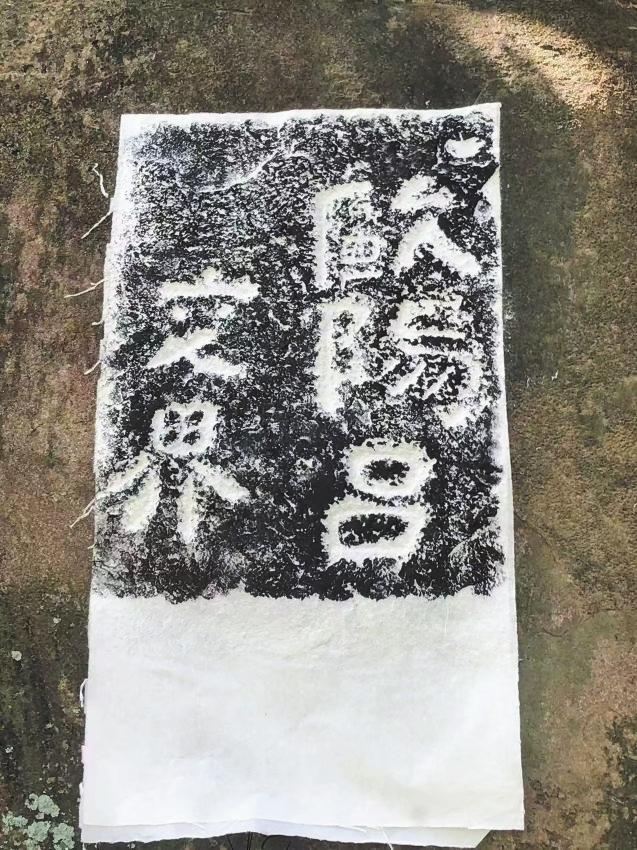 歐陽吕
交界